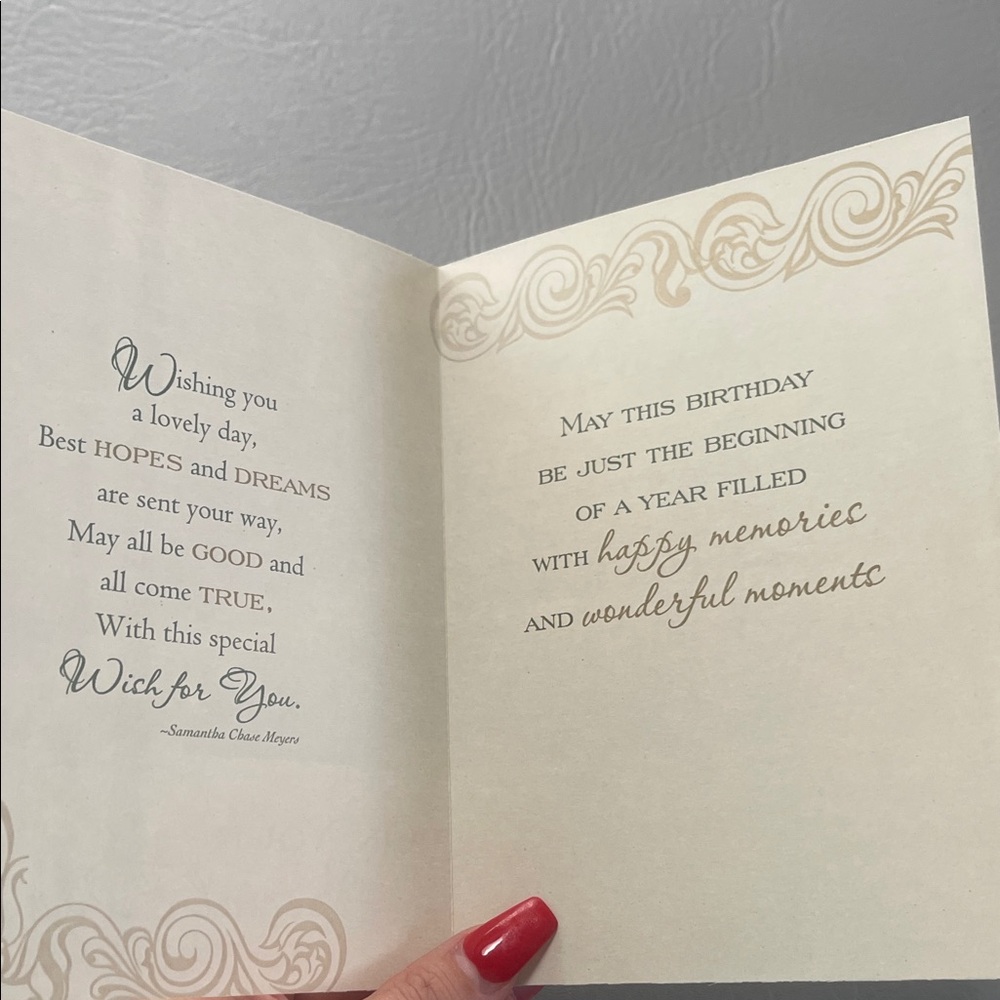 Wishing you
a lovely day,
Best HOPES and DREAMS
are sent your way,
May all be GOOD and
all come TRUE,
With this special
Wish for You.
~Samantha Chase Meyers
MAY THIS BIRTHDAY
BE JUST THE BEGINNING
OF A YEAR FILLED
WITH happy memories
AND wonderful moments